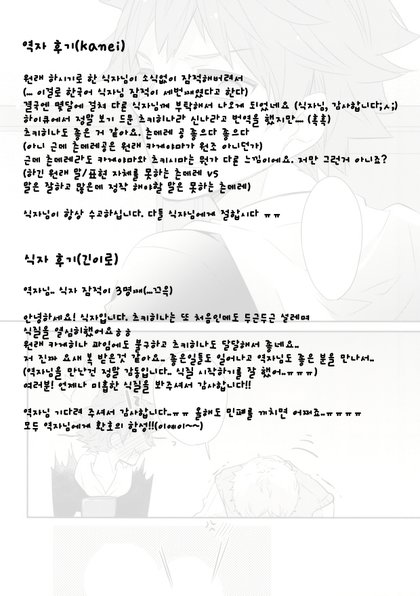 역자 후기(kanei)
원래 하시기로 한 식자님이 소식없이 잠적해버려서
(... 이걸로 한국어 식자님 잠적이 세번째였다고 한다)
결국엔 몇달에 걸쳐 다른 식자님께 부탁해서 나오게 되었네요 (식자님, 감사합니다;ㅅ;)
하이큐에서 정말 보기 드문 츠키히나라 신나라고 번역을 했지만.... (흑흑)
츠키히나도 좋은 거 같아요. 츤데레 공 좋으다 좋으다
(아니 근데 츤데레공은 원래 카게야마가 원조 아니던가)
근데 츤데레라도 카게야마와 츠키시마는 뭔가 다른 느낌이에요. 저만 그런거 아니죠?
(하긴 원래 말/표현 자체를 못하는 츤데레 vs
말은 잘하고 많은데 정작 해야할 말은 못하는 츤데레)
식자님이 항상 수고하십니다. 다들 식자님에게 절합시다 ㅠㅠ
식자 후기(긴이로)
역자님.. 식자 잠적이 3명째(...끄윽)
안녕하세요! 식자입니다. 츠키히나는 또 처음인데도 두근두근 설레며
식질을 열심히했어요ㅎㅎ
원래 카게히나 파임에도 불구하고 츠키히나도 달달해서 좋네요..
저 진짜 요새 복 받은것 같아요.. 좋은일들도 일어나고 역자님도 좋은 분을 만나서..
(역자님을 만난건 정말 감동입니다.. 식질 시작하기를 잘 했어..ㅠㅠㅠ)
여러분! 언제나 미흡한 식질을 봐주셔서 감사합니다!!
역자님 기다려 주셔서 감사합니다..ㅠㅠ 올해도 민폐를 끼치면 어쩌죠..ㅠㅠㅠㅠ
모두 역자님에게 환호의 함성!!(이예이~~)